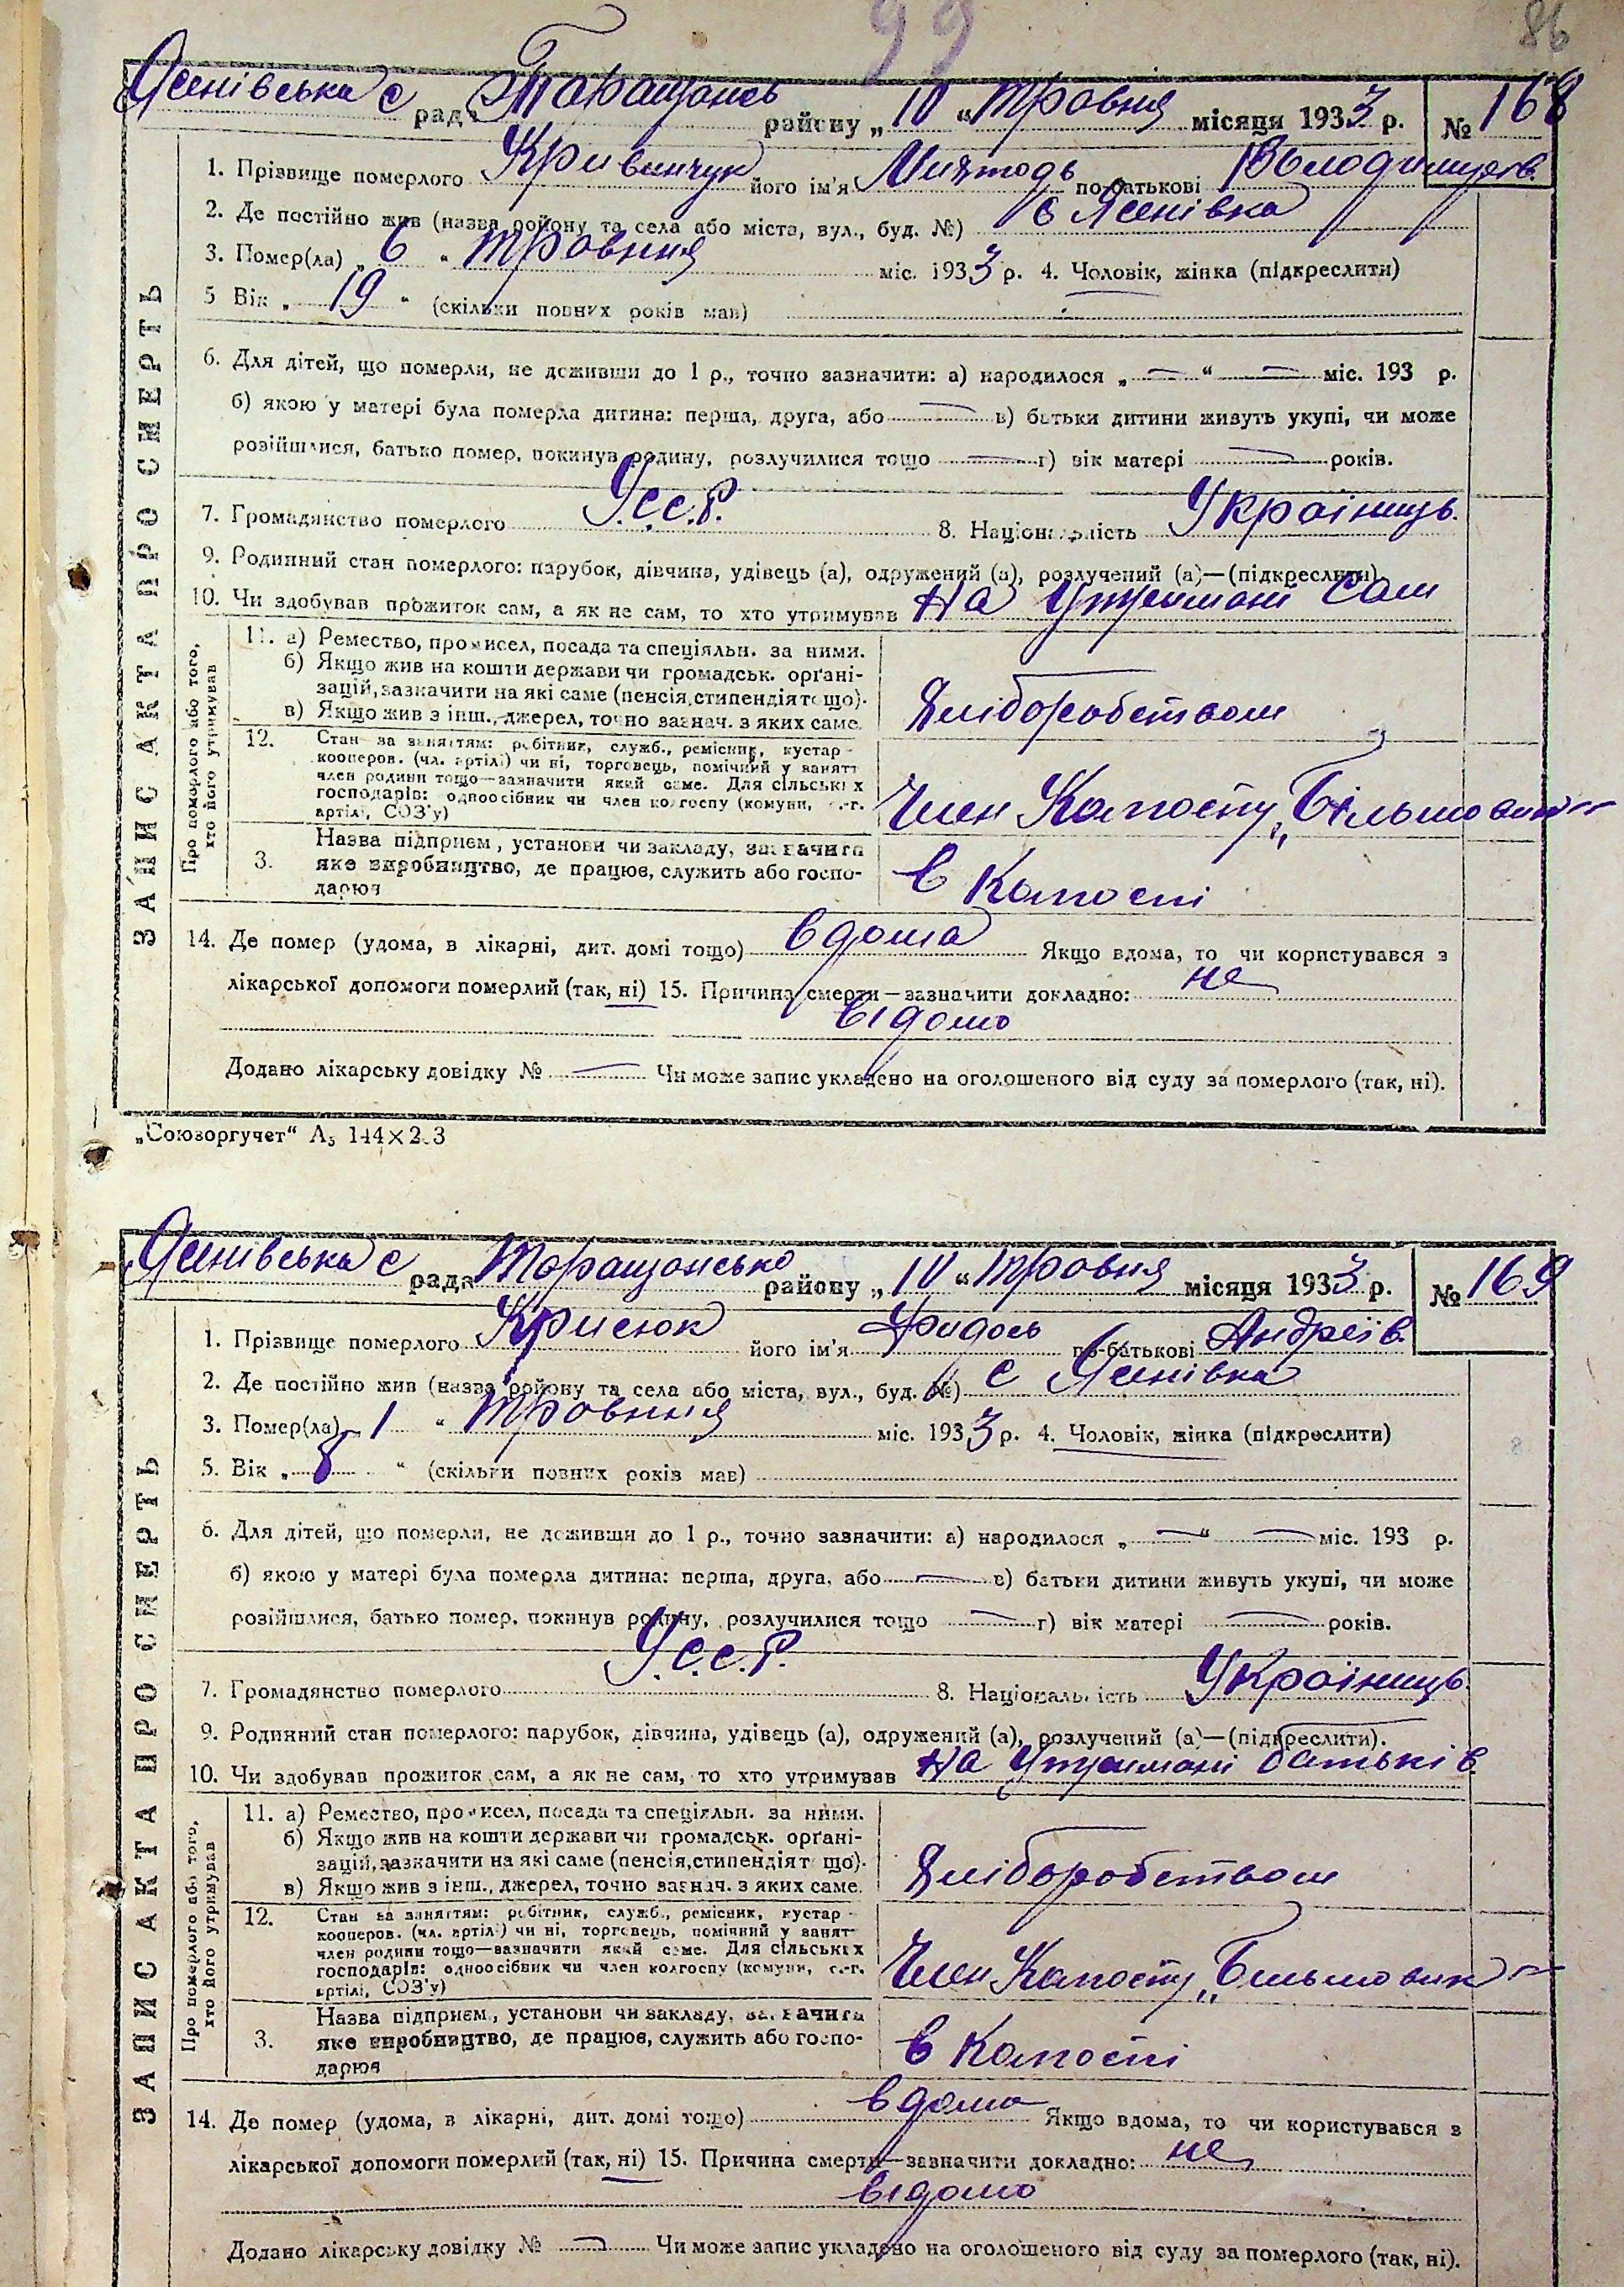 99
86
Ясенівська с рад Таращансь району „10“ Травня місяця 1933 р. № 168
1. Прізвище померлого Кривенчук його ім'я Митодь по-батькові Володимиров.
2. Де постійно жив (назва району та села або міста, вул., буд. №) с Ясенівка
3. Помер(ла) „6“ Травня міс. 1933 р. 4. Чоловік, жінка (підкреслити)
5 Вік „19“ (скільки повних років мав)
6. Для дітей, що померли, не доживши до 1 р., точно зазначити: а) народилося „—“ — міс. 193 р.
б) якою у матері була померла дитина: перша, друга, або — в) батьки дитини живуть укупі, чи може
розійшлися, батько помер, покинув родину, розлучилися тощо — г) вік матері — років.
7. Громадянство померлого У.С.С.Р. 8. Національність Українець.
9. Родинний стан померлого: парубок, дівчина, удівець (а), одружений (а), розлучений (а)—(підкреслити)
10. Чи здобував прожиток сам, а як не сам, то хто утримував На утримані сам
ЗАПИС АКТА ПРО СМЕРТЬ
Про померлого або того,
хто його утримував
11. а) Ремество, промисел, посада та спеціяльн. за ними.
б) Якщо жив на кошти держави чи громадськ. орґані-
зацій, зазначити на які саме (пенсія, стипендія тощо).
в) Якщо жив з інш., джерел, точно зазнач. з яких саме.
Хліборобством
12. Стан за заняттям: робітник, служб., ремісник, кустар
кооперов. (чл. артілі) чи ні, торговець, помічний у занятт
член родини тощо—зазначити який саме. Для сільських
господарів: одноосібник чи член колгоспу (комуни, с.-г.
артілі, СОЗ'у)
Член Колгоспу „Більшовик“
3. Назва підприєм., установи чи закладу, зазначити
яке виробництво, де працює, служить або госпо-
дарює
в Колгоспі
14. Де помер (удома, в лікарні, дит. домі тощо) вдома Якщо вдома, то чи користувався з
лікарської допомоги померлий (так, ні) 15. Причина смерти—зазначити докладно: не
відомо
Додано лікарську довідку № — Чи може запис укладено на оголошеного від суду за померлого (так, ні).
„Союзоргучет“ А5 144×203
Ясенівська с рада Таращансько району „10“ Травня місяця 1933 р. № 169
1. Прізвище померлого Крисюк його ім'я Фидось по-батькові Андреїв.
2. Де постійно жив (назва району та села або міста, вул., буд. №) с Ясенівка
3. Помер(ла) „1“ Травня міс. 1933 р. 4. Чоловік, жінка (підкреслити)
5. Вік „8“ (скільки повних років мав)
6. Для дітей, що померли, не доживши до 1 р., точно зазначити: а) народилося „—“ — міс. 193 р.
б) якою у матері була померла дитина: перша, друга, або — в) батьки дитини живуть укупі, чи може
розійшлися, батько помер, покинув родину, розлучилися тощо — г) вік матері — років.
7. Громадянство померлого У.С.С.Р. 8. Національність Українець.
9. Родинний стан померлого: парубок, дівчина, удівець (а), одружений (а), розлучений (а)—(підкреслити).
10. Чи здобував прожиток сам, а як не сам, то хто утримував На утримані батьків
ЗАПИС АКТА ПРО СМЕРТЬ
Про померлого або того,
хто його утримував
11. а) Ремество, промисел, посада та спеціяльн. за ними.
б) Якщо жив на кошти держави чи громадськ. орґані-
зацій, зазначити на які саме (пенсія, стипендія тощо).
в) Якщо жив з інш., джерел, точно зазнач. з яких саме.
Хліборобством
12. Стан за заняттям: робітник, служб., ремісник, кустар
кооперов. (чл. артілі) чи ні, торговець, помічний у занятт
член родини тощо—зазначити який саме. Для сільських
господарів: одноосібник чи член колгоспу (комуни, с.-г.
артілі, СОЗ'у)
Член Колгоспу „Більшовик“
3. Назва підприєм., установи чи закладу, зазначити
яке виробництво, де працює, служить або госпо-
дарює
в Колгоспі
14. Де помер (удома, в лікарні, дит. домі тощо) вдома Якщо вдома, то чи користувався з
лікарської допомоги померлий (так, ні) 15. Причина смерти—зазначити докладно: не
відомо
Додано лікарську довідку № — Чи може запис укладено на оголошеного від суду за померлого (так, ні).